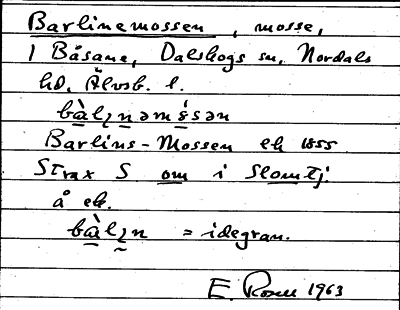 Barlinemossen, mosse,
1 Båsane, Dalskogs sn, Nordals
hd, Älvsb. l.
bàlɩnəmósən
Barlins-Mossen ek 1855
Strax S om i Slomtj.
å ek.
bàlɩn = idegran.
E. Rosell 1963